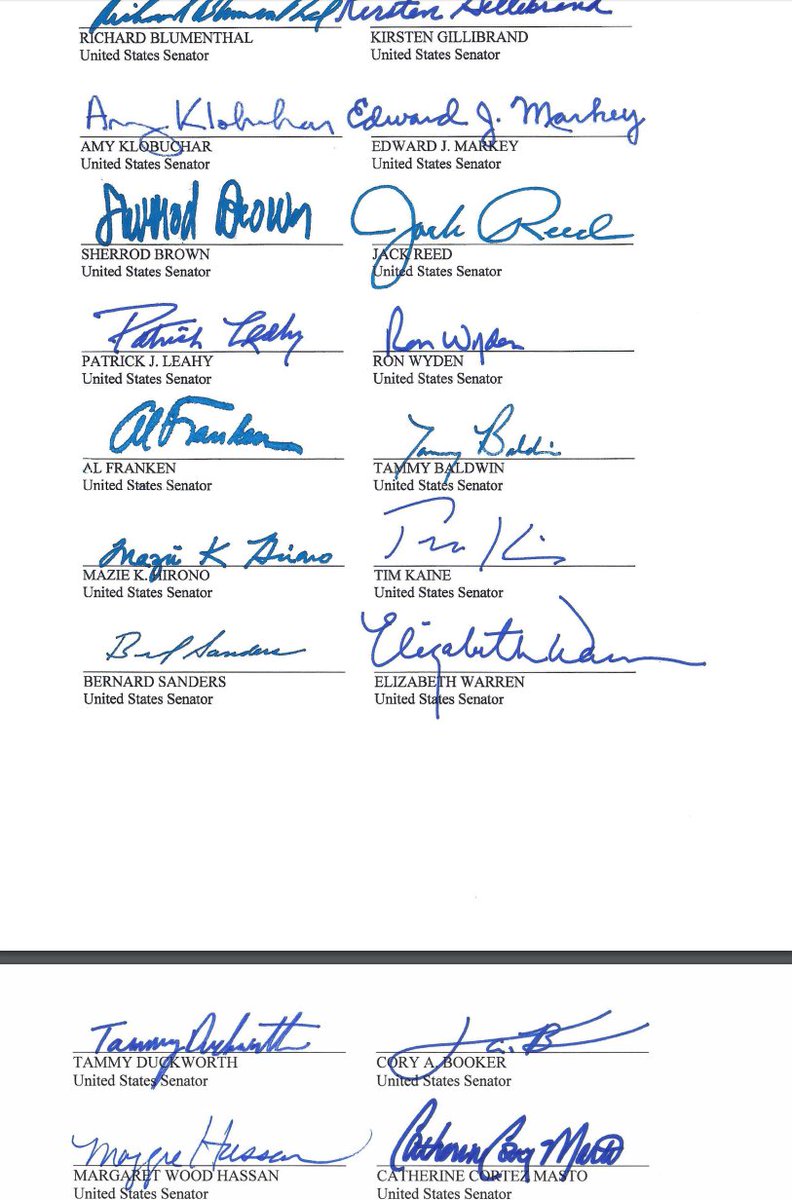 Richard Blumenthal Kirsten Gillibrand
RICHARD BLUMENTHAL KIRSTEN GILLIBRAND
United States Senator United States Senator
Amy Klobuchar Edward J. Markey
AMY KLOBUCHAR EDWARD J. MARKEY
United States Senator United States Senator
Sherrod Brown Jack Reed
SHERROD BROWN JACK REED
United States Senator United States Senator
Patrick Leahy Ron Wyden
PATRICK J. LEAHY RON WYDEN
United States Senator United States Senator
Al Franken Tammy Baldwin
AL FRANKEN TAMMY BALDWIN
United States Senator United States Senator
Mazie K Hirono Tim Kaine
MAZIE K. HIRONO TIM KAINE
United States Senator United States Senator
Bernard Sanders Elizabeth Warren
BERNARD SANDERS ELIZABETH WARREN
United States Senator United States Senator
Tammy Duckworth
TAMMY DUCKWORTH CORY A. BOOKER
United States Senator United States Senator
Maggie Hassan Catherine Cortez Masto
MARGARET WOOD HASSAN CATHERINE CORTEZ MASTO
United States Senator United States Senator